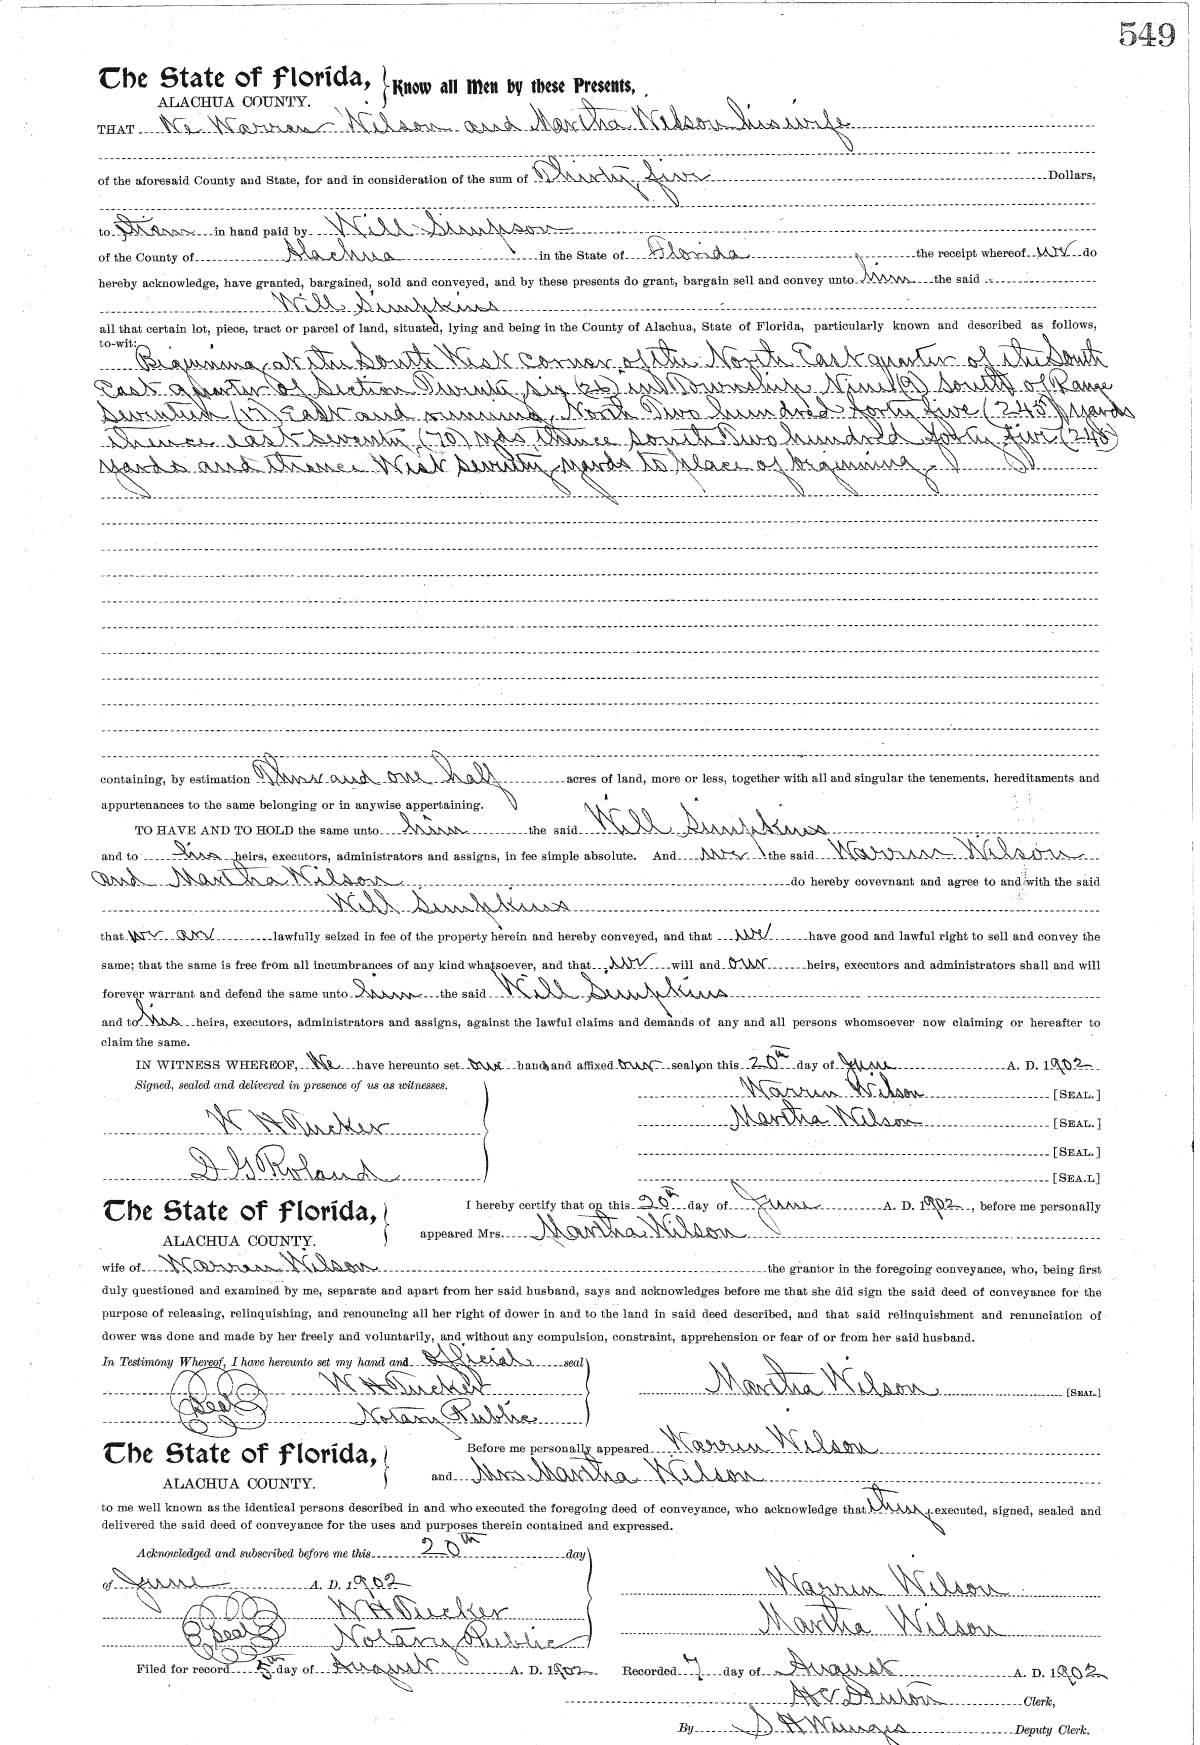 549
The State of Florida, Know all Men by these Presents,
ALACHUA COUNTY.
THAT We Warren Wilson and Martha Wilson his wife
of the aforesaid County and State, for and in consideration of the sum of Thirty five Dollars,
to them in hand paid by Will Simpson
of the County of Alachua in the State of Florida the receipt whereof we do
hereby acknowledge, have granted, bargained, sold and conveyed, and by these presents do grant, bargain sell and convey unto him the said
Will Simpkins
all that certain lot, piece, tract or parcel of land, situated, lying and being in the County of Alachua, State of Florida, particularly known and described as follows,
to-wit:
Beginning at the South West corner of the North East quarter of the South
East quarter of Section Twenty six (26) in Township Nine (9) South of Range
Seventeen (17) East and running North Two hundred forty five (245) yards
thence east seventy (70) yds, thence South Two hundred forty five (245)
yards and thence West seventy yards to place of beginning.
containing, by estimation Three and one half acres of land, more or less, together with all and singular the tenements, hereditaments and
appurtenances to the same belonging or in anywise appertaining.
TO HAVE AND TO HOLD the same unto him the said Will Simpkins
and to his heirs, executors, administrators and assigns, in fee simple absolute. And we the said Warren Wilson
and Martha Wilson do hereby covevnant and agree to and with the said
Will Simpkins
that we are lawfully seized in fee of the property herein and hereby conveyed, and that we have good and lawful right to sell and convey the
same; that the same is free from all incumbrances of any kind whatsoever, and that we will and our heirs, executors and administrators shall and will
forever warrant and defend the same unto him the said Will Simpkins
and to his heirs, executors, administrators and assigns, against the lawful claims and demands of any and all persons whomsoever now claiming or hereafter to
claim the same.
IN WITNESS WHEREOF, We have hereunto set our hands and affixed our seals on this 20th day of June A. D. 1902
Signed, sealed and delivered in presence of us as witnesses.
Warren Wilson [SEAL.]
W H Tucker Martha Wilson [SEAL.]
[SEAL.]
D G Roland [SEA.L]
The State of Florida, I hereby certify that on this 20th day of June A. D. 1902, before me personally
ALACHUA COUNTY. appeared Mrs. Martha Wilson
wife of Warren Wilson the grantor in the foregoing conveyance, who, being first
duly questioned and examined by me, separate and apart from her said husband, says and acknowledges before me that she did sign the said deed of conveyance for the
purpose of releasing, relinquishing, and renouncing all her right of dower in and to the land in said deed described, and that said relinquishment and renunciation of
dower was done and made by her freely and voluntarily, and without any compulsion, constraint, apprehension or fear of or from her said husband.
In Testimony Whereof, I have hereunto set my hand and official seal
W H Tucker Martha Wilson [SEAL]
Seal Notary Public
The State of Florida, Before me personally appeared Warren Wilson
ALACHUA COUNTY. and Mrs Martha Wilson
to me well known as the identical persons described in and who executed the foregoing deed of conveyance, who acknowledge that they executed, signed, sealed and
delivered the said deed of conveyance for the uses and purposes therein contained and expressed.
Acknowledged and subscribed before me this 20th day
of June A. D. 1902 Warren Wilson
W H Tucker Martha Wilson
Seal Notary Public
Filed for record 5th day of August A. D. 1902 Recorded 7 day of August A. D. 1902
H C Denton Clerk,
By S H Wienges Deputy Clerk.